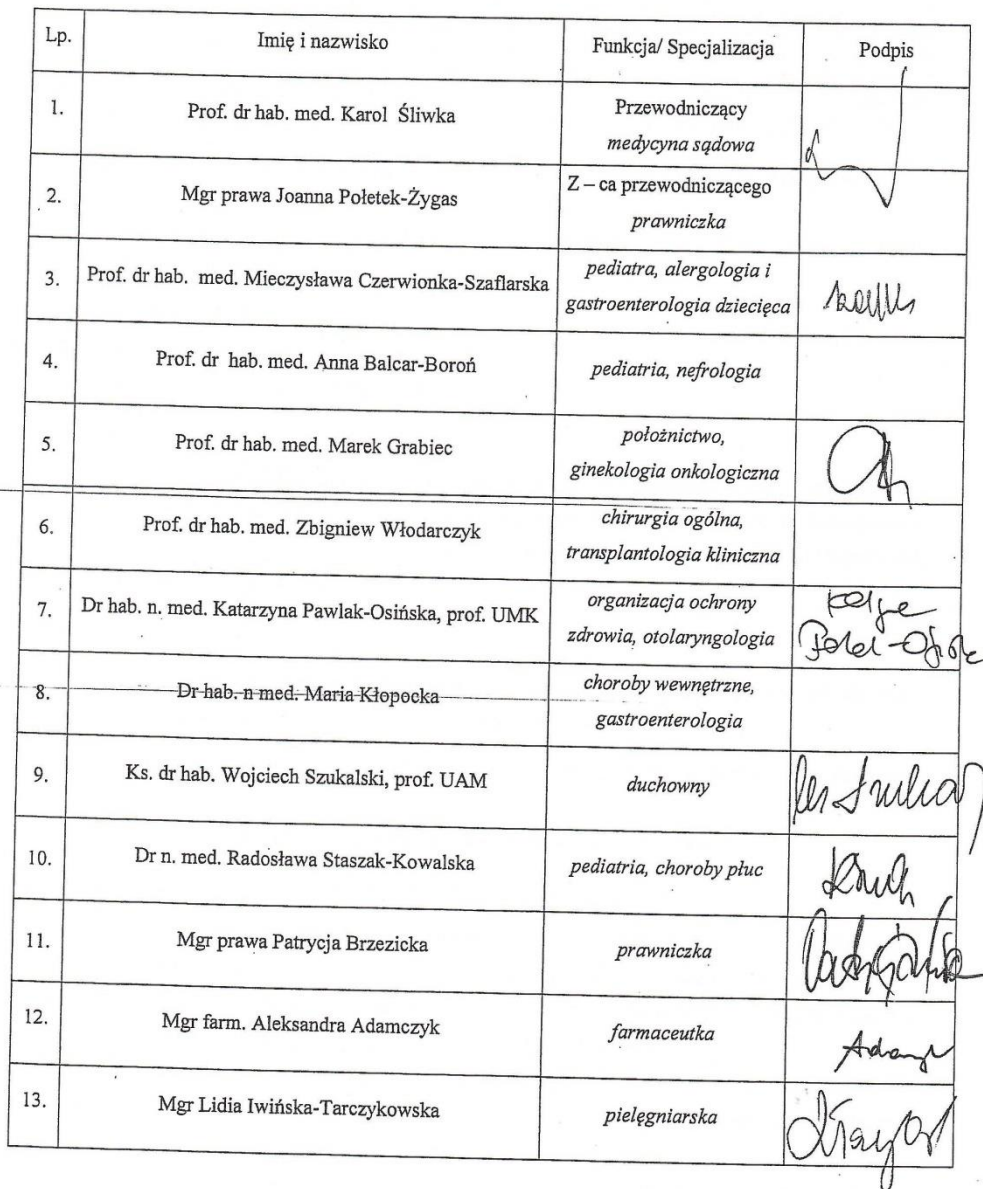 Lp. Imię i nazwisko Funkcja/ Specjalizacja Podpis
1. Prof. dr hab. med. Karol Śliwka Przewodniczący
medycyna sądowa
2. Mgr prawa Joanna Połetek-Żygas Z – ca przewodniczącego
prawniczka
3. Prof. dr hab. med. Mieczysława Czerwionka-Szaflarska pediatra, alergologia i
gastroenterologia dziecięca
4. Prof. dr hab. med. Anna Balcar-Boroń pediatria, nefrologia
5. Prof. dr hab. med. Marek Grabiec położnictwo,
ginekologia onkologiczna
6. Prof. dr hab. med. Zbigniew Włodarczyk chirurgia ogólna,
transplantologia kliniczna
7. Dr hab. n. med. Katarzyna Pawlak-Osińska, prof. UMK organizacja ochrony
zdrowia, otolaryngologia
8. Dr hab. n med. Maria Kłopocka choroby wewnętrzne,
gastroenterologia
9. Ks. dr hab. Wojciech Szukalski, prof. UAM duchowny
10. Dr n. med. Radosława Staszak-Kowalska pediatria, choroby płuc
11. Mgr prawa Patrycja Brzezicka prawniczka
12. Mgr farm. Aleksandra Adamczyk farmaceutka
13. Mgr Lidia Iwińska-Tarczykowska pielęgniarska